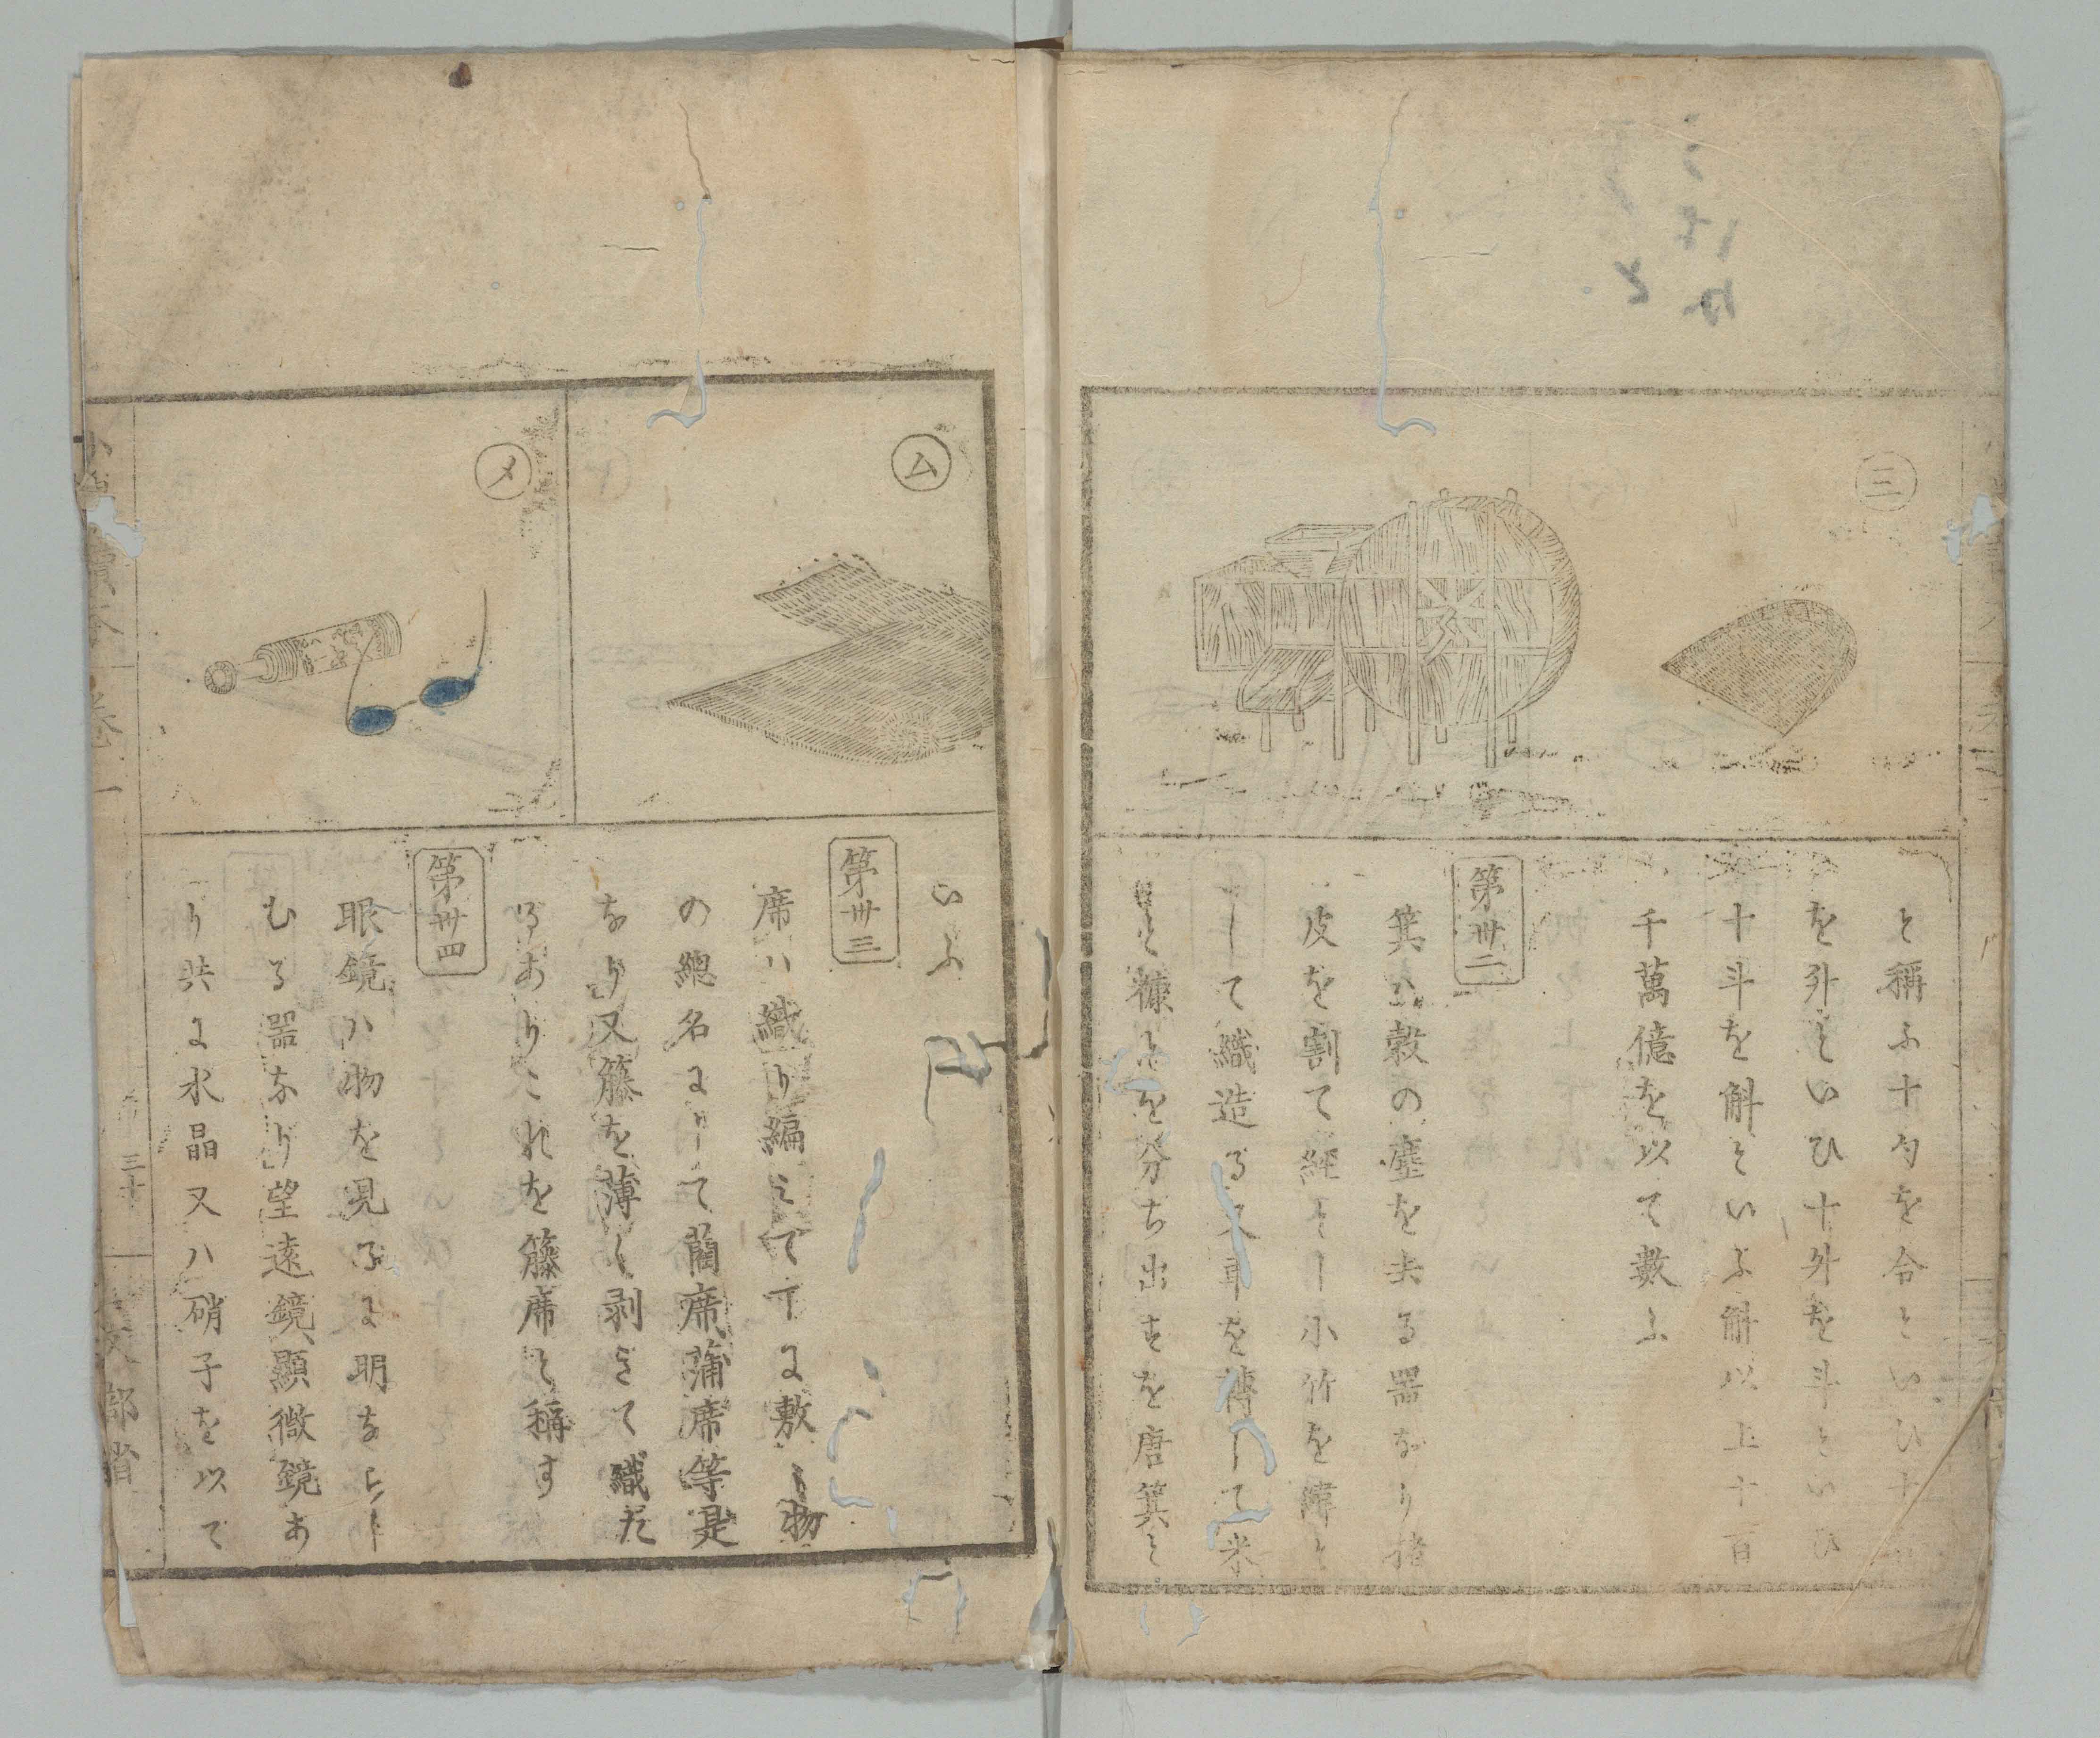 三
と稱ふ十勺を合といひ十合
を升といひ十升を斗といひ
十斗を斛といふ斛以上十百
千萬億を以て數ふ
第卅二
箕ハ穀の塵を去る器なり猪
皮を割て經とし小竹を緯と
して織造る又車を轉して米
と糠とを分ち出すを唐箕と
ム
いふ
第卅三
席ハ織り編ミて下に敷く物
の總名にして藺席蒲席等是
なり又籐を薄く剥ぎて織た
るありこれを籐席と稱す
メ
第卅四
眼鏡ハ物を見るに明ならし
むる器なり望遠鏡顯微鏡あ
り共に水晶又ハ硝子を以て
卷一
三十
文部省